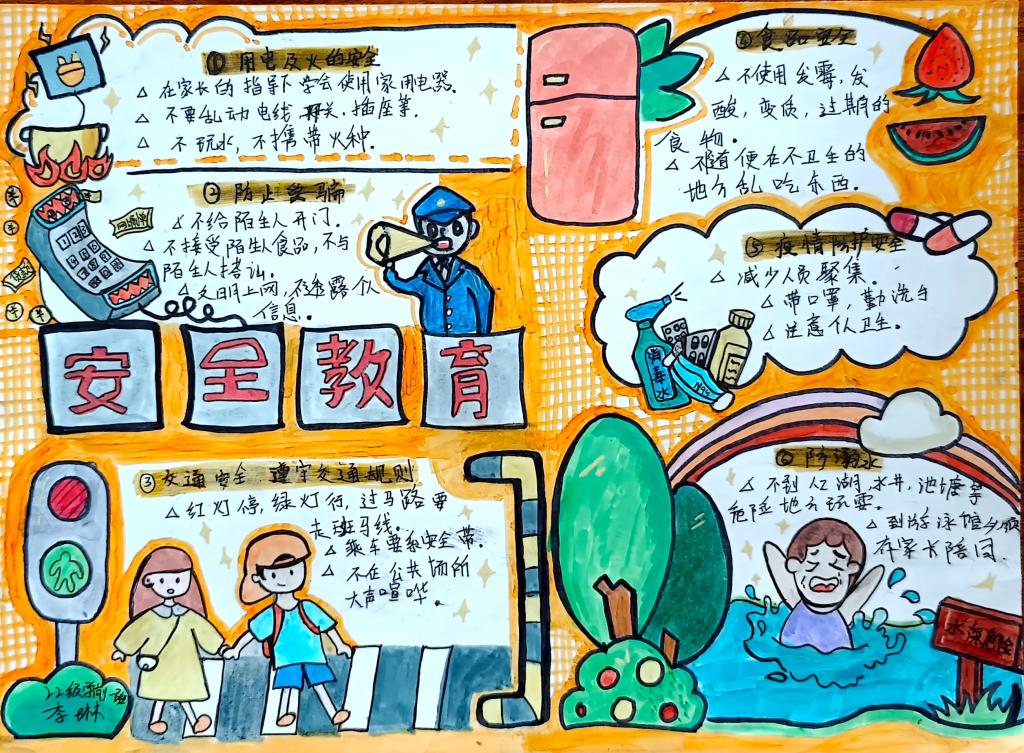 ①用电及火的安全
△ 在家长的指导下学会使用家用电器.
△ 不要乱动电线、开关、插座等.
△ 不玩水,不携带火种.
②防止受骗
△ 不给陌生人开门.
△ 不接受陌生人食品,不与
陌生人搭讪.
△ 文明上网,不透露个人
信息.
安全教育
③交通安全 遵守交通规则
△ 红灯停,绿灯行,过马路要
走斑马线.
△ 乘车要系安全带.
△ 不在公共场所
大声喧哗.
班
李琳
④食品安全
△ 不使用发霉,发
酸,变质,过期的
食物.
△ 不随便在不卫生的
地方乱吃东西.
⑤疫情防护安全
△ 减少人员聚集.
△ 带口罩,勤洗手
△ 注意个人卫生.
消毒水
N95
⑥防溺水
△ 不到江湖,水井,池塘等
危险地方玩耍.
△ 到游泳馆
在家长陪同.
水深危险